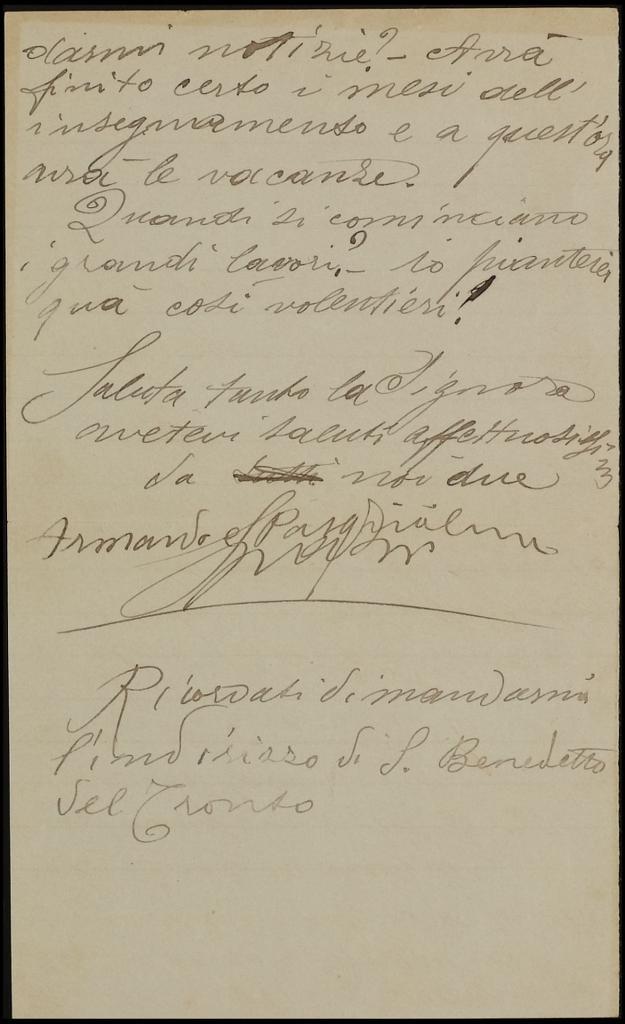 darmi notizie? - Avrà
finito certo i mesi dell'
insegnamento e a quest'ora
avrà le vacanze.
Quandi si cominciano
i grandi lavori? - io pianterei
quà così volentieri!
Saluta tanto la Signora
avetevi saluti affettuosissimi
da tutti noi due
Armando
Ricordati di mandarmi
l'indirizzo di S. Benedetto
del Tronto